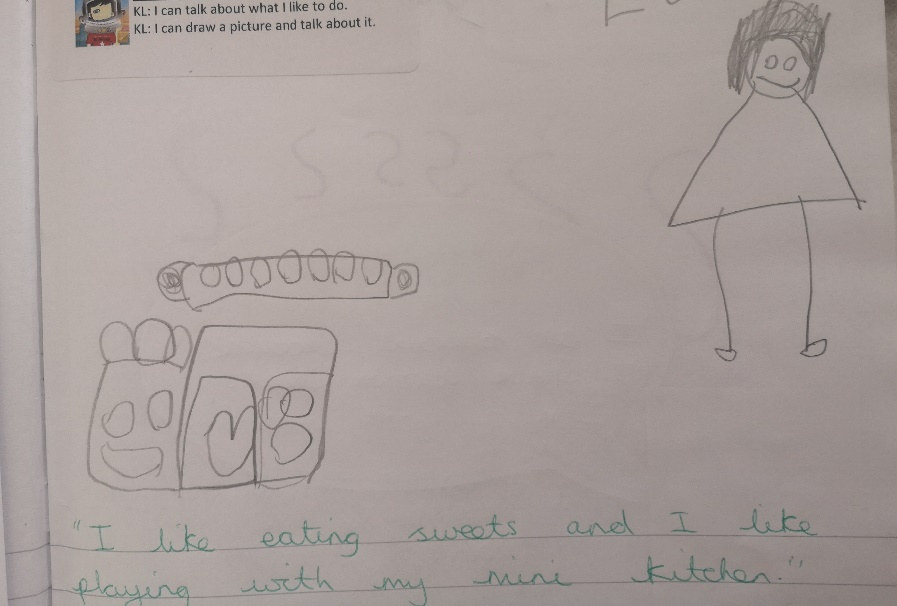 KL: I can talk about what I like to do.
KL: I can draw a picture and talk about it.
"I like eating sweets and I like
playing with my mini kitchen."